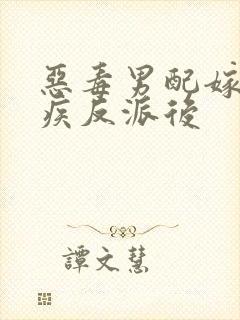 惡毒男配嫁
疾反派後
譚文慧